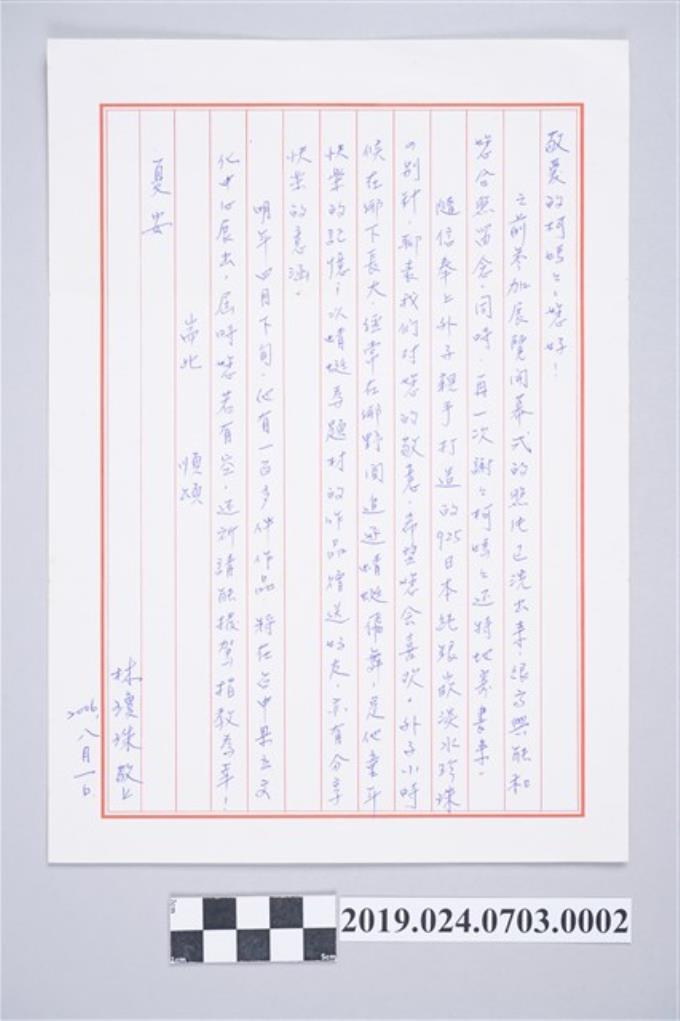 敬愛的柯媽々，您好！
之前參加展覽開幕式的照片已洗出來，很高興能和
您合照留念，同時，再一次謝々柯媽々還特地寄書來。
隨信奉上外子親手打造的925日本純銀嵌淡水珍珠
的別針，聊表我們對您的敬意，希望您會喜歡。外子小時
候在鄉下長大，經常在鄉野間追逐蜻蜓偏舞，是他童年
快樂的記憶；以蜻蜓為題材的作品贈送好友，亦有分享
快樂的意涵。
明年四月下旬，他有一百多件作品將在台中県立文
化中心展出，屆時您若有空，還祈請能撥駕指教為幸！
耑此 順頌
夏安
林瓊珠敬上
2006.八月一日.
2019.024.0703.0002
1cm
5cm